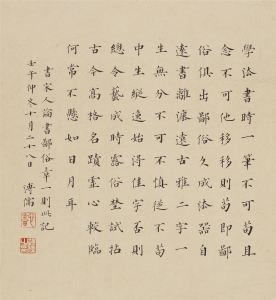 學法書時一筆不可苟且
念不可他移移則苟即鄙
俗俱出鄙俗久成依器自
遠書離濂遠古雅二字一
生無分不可不慎從不苟
中生縱遠始得佳字否則
總令藝成時露俗埜試拈
古今高格名蹟靈心較臨
何常不懸如日月耳
書家人論書鄙俗章一則此記
壬午仲冬十月二十八日 溥儒